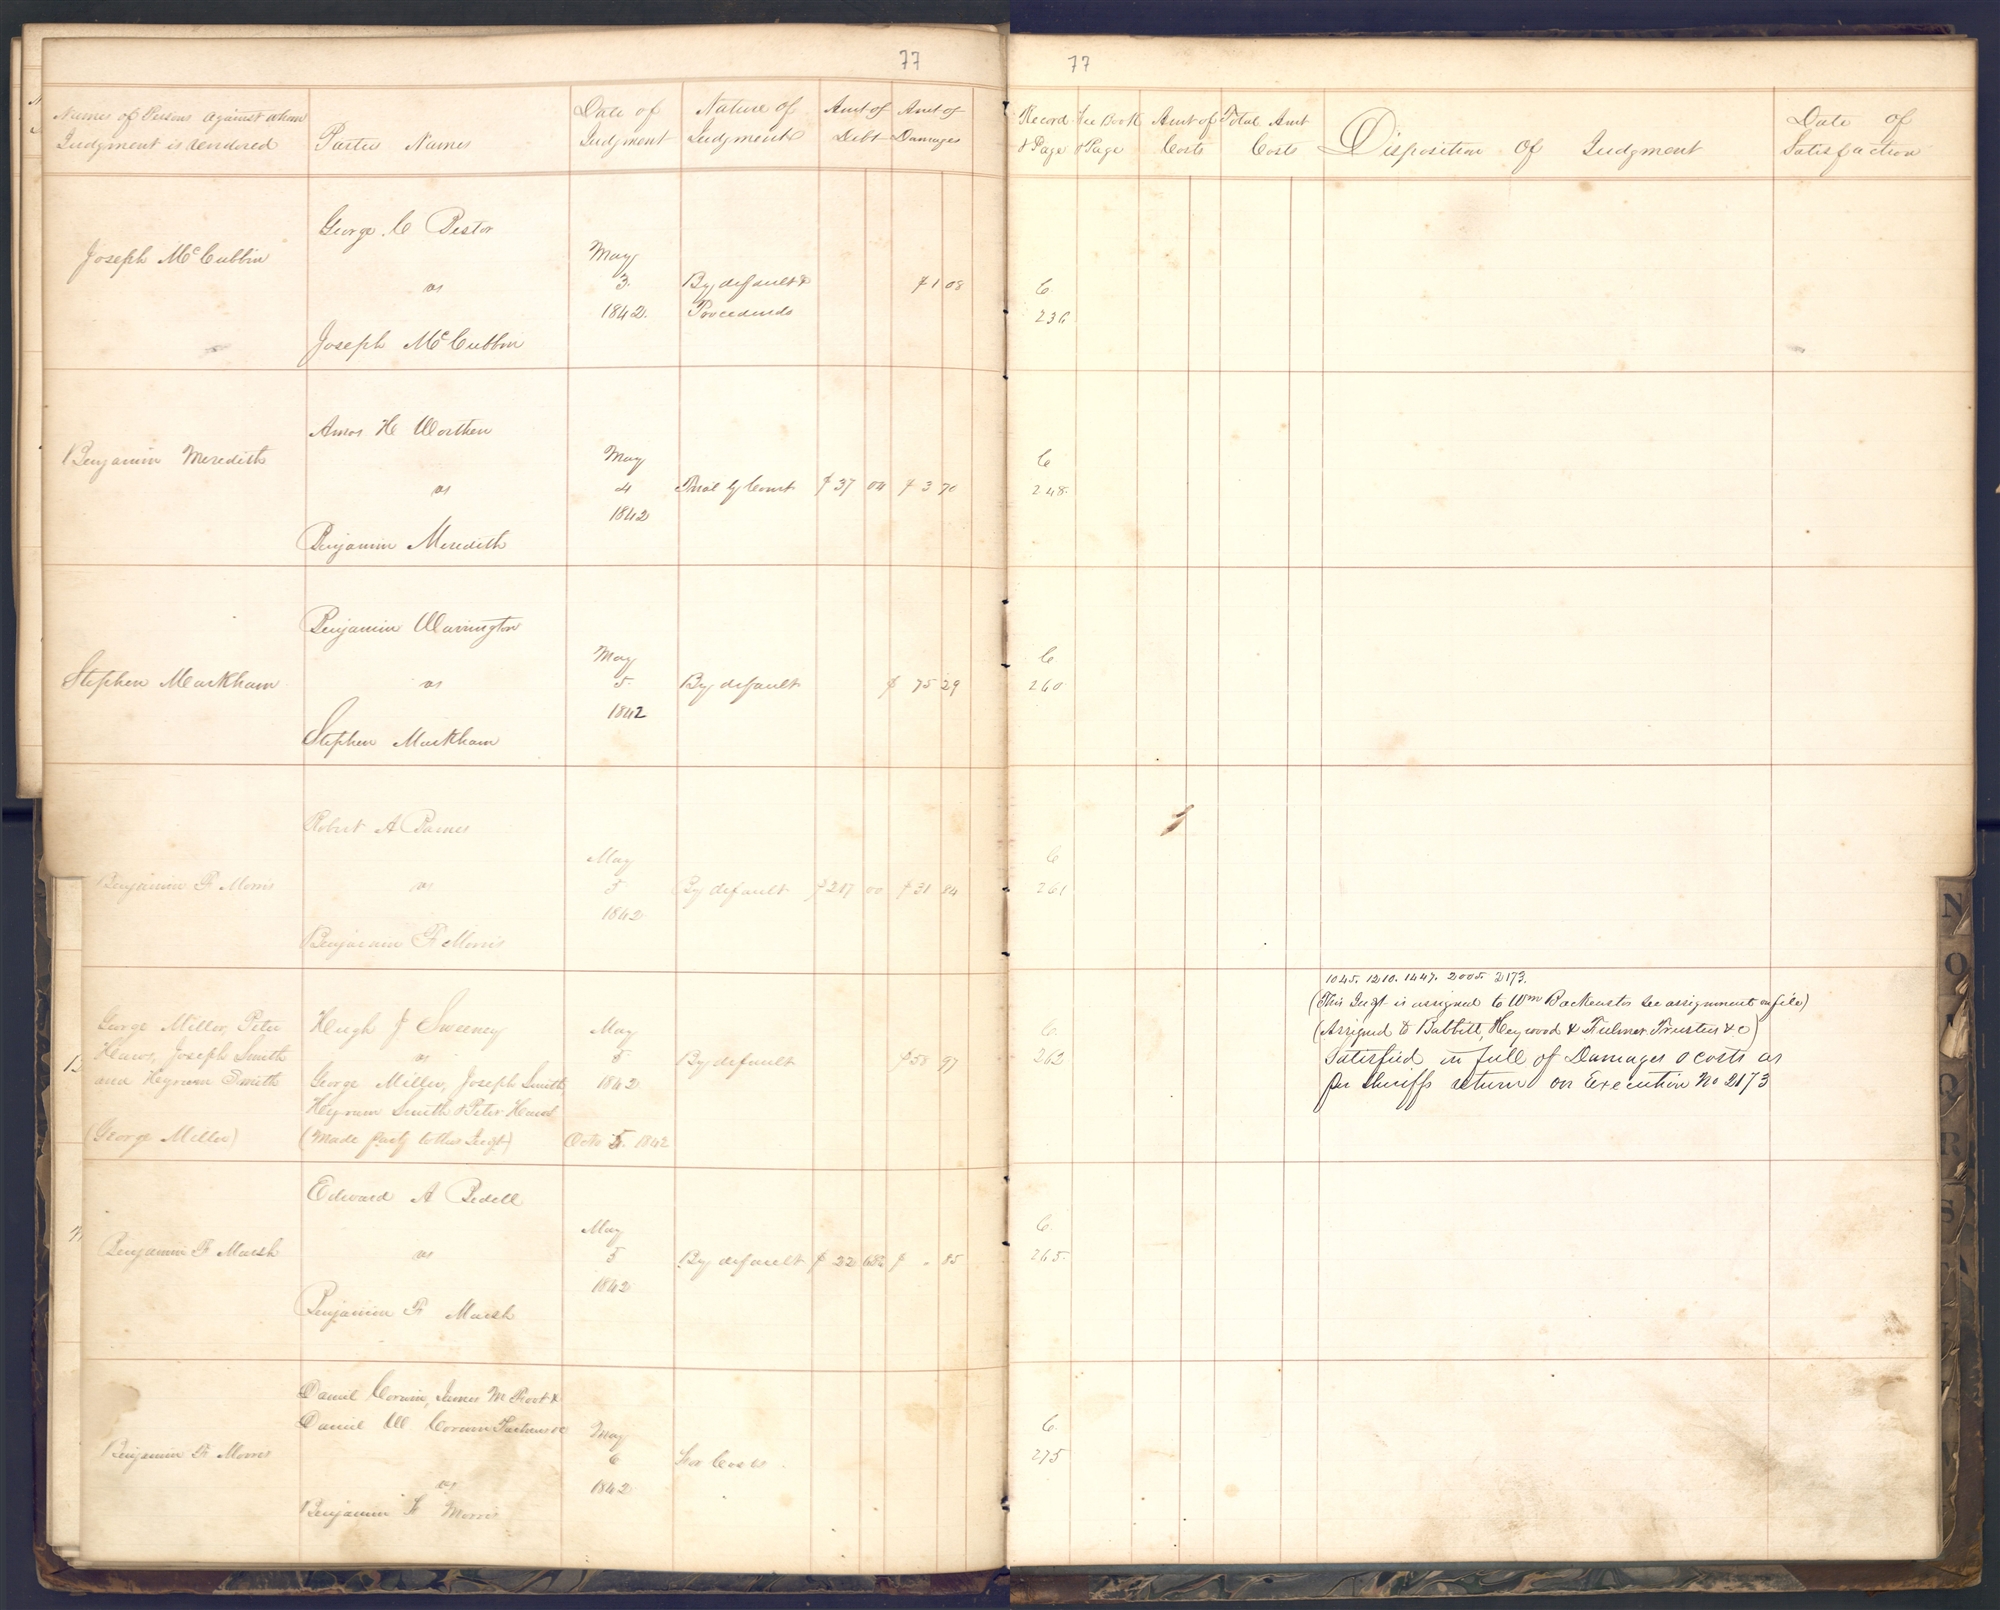 77
Names of Persons against whom
Judgment is rendered
Parties Names
Date of
Judgment
Nature of
Judgment
Amt of
Debt
Amt of
Damages
Joseph McCubbin
George C Pestor
vs
Joseph McCubbin
May
3
1842.
By default &
$1 08
Benjamin Meredith
Amos H Worthen
vs
Benjamin Meredith
May
4
1842
Trial by Court
$37 04
$3 70
Stephen Markham
Benjamin Warrington
vs
Stephen Markham
May
5
1842
By default
$75 29
Benjamin F Morris
Robert A Barnes
vs
Benjamin F Morris
May
5
1842
By default
$217 00
$31 84
George Miller, Peter
Haws, Joseph Smith
and Heyrum Smith
(George Miller)
Hugh J Sweeney
vs
George Miller, Joseph Smith,
Heyrum Smith & Peter Haws
(Made party to this Judgt)
May
5
1842
Octo 5. 1842
By default
$58 97
Benjamin F Marsh
Edward A Bedell
vs
Benjamin F Marsh
May
5
1842
By default
$22 68½
$ . 85
Benjamin F Morris
Daniel Corwin, James M Root &
Daniel W Corwin Partners &c
vs
Benjamin F Morris
May
6
1842
For Costs
77
Record
& Page
Fee Book
& Page
Amt of
Costs
Total Amt
Costs
Disposition Of Judgment
Date of
Satisfaction
C
236
C
248
C
260
C
261
C
263
1045. 1210. 1447. 2005. 2173.
(This Judgt is assigned to Wm Backenstos see assignment on file)
(Assigned to Babbitt, Heywood & Fulmer Trustees &c)
Satisfied in full of Damages & costs as
per Sheriffs return on Execution No 2173
C
265
C
275